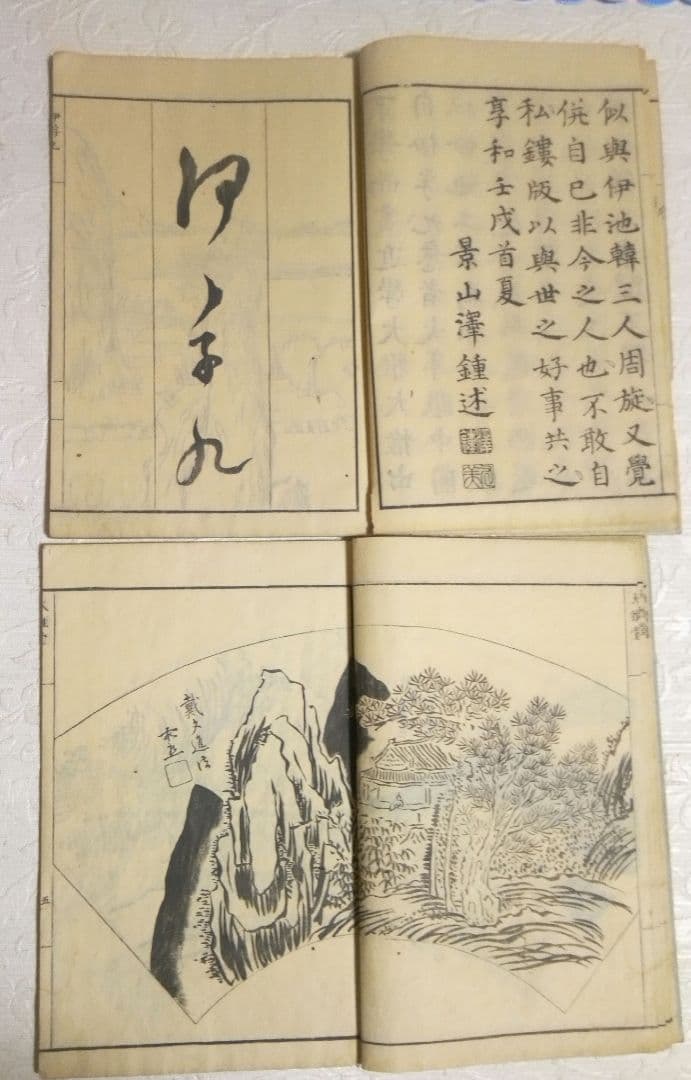 似與伊池韓三人周旋又覺
倂自已非今之人也不敢自
私鏤版以與世之好事共之
享和壬戌首夏
景山澤鍾述
伊孚九
戴文進法
五